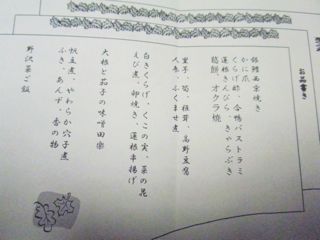 お品書き
銀鱈西京焼き
かに爪
くらげ酢、合鴨パストラミ
蓮根きんぴら、きゃらぶき
葛餅、オクラ焼
里子、筍、椎茸、高野豆腐
人参、ふくませ煮
白きくらげ、くこの実、菜の花
えび煮、卵焼き、蓮根串揚げ
大根と茄子の味噌田楽
帆立煮、やわらか穴子煮
ふき、あんず、香の物
野沢菜ご飯